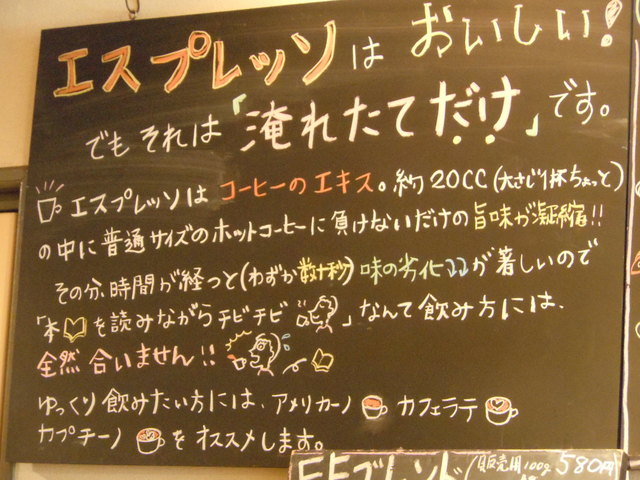 エスプレッソは おいしい!
でもそれは「淹れたてだけ」です。
エスプレッソは コーヒーのエキス。約20CC(大さじ1杯ちょっと)
の中に普通サイズのホットコーヒーに負けないだけの旨味が凝縮!!
その分、時間が経つと(わずか数十秒)味の劣化が著しいので
「本を読みながらチビチビ」なんて飲み方には、
全然合いません!!
ゆっくり飲みたい方には、アメリカーノ カフェラテ
カプチーノ をオススメします。
販売用100g 580円